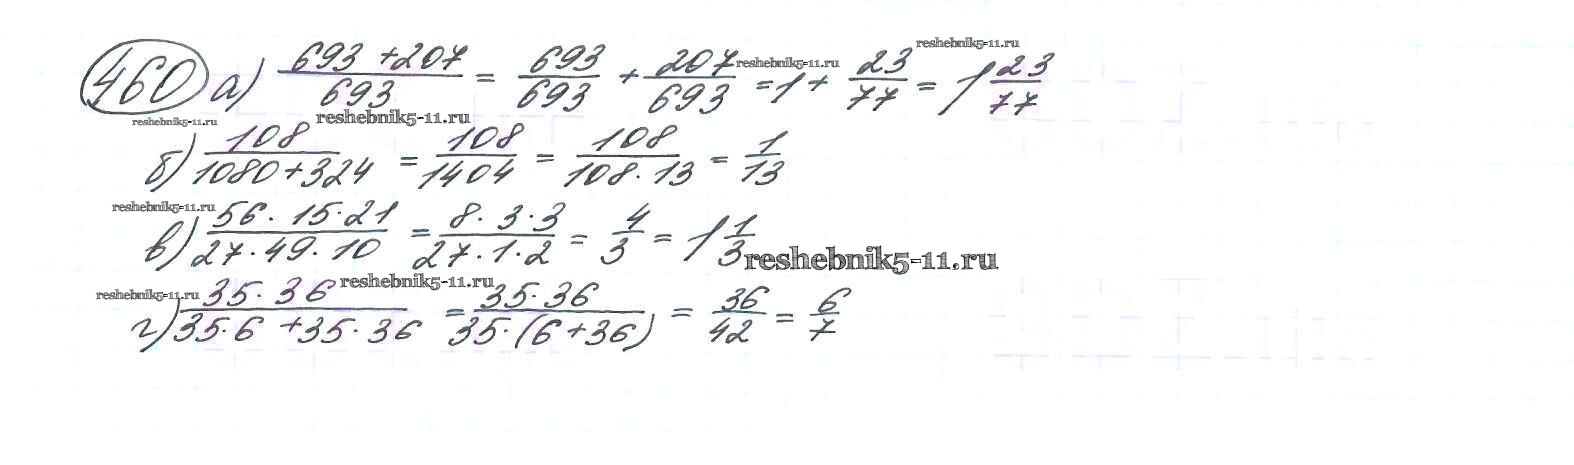 460 а) (693 + 207)/693 = 693/693 + 207/693 = 1 + 23/77 = 1 23/77
б) 108/(1080 + 324) = 108/1404 = 108/(108 · 13) = 1/13
в) (56 · 15 · 21)/(27 · 49 · 10) = (8 · 3 · 3)/(27 · 1 · 2) = 4/3 = 1 1/3
г) (35 · 36)/(35 · 6 + 35 · 36) = (35 · 36)/(35 · (6 + 36)) = 36/42 = 6/7
reshebnik5-11.ru
reshebnik5-11.ru
reshebnik5-11.ru
reshebnik5-11.ru
reshebnik5-11.ru
reshebnik5-11.ru
reshebnik5-11.ru
reshebnik5-11.ru